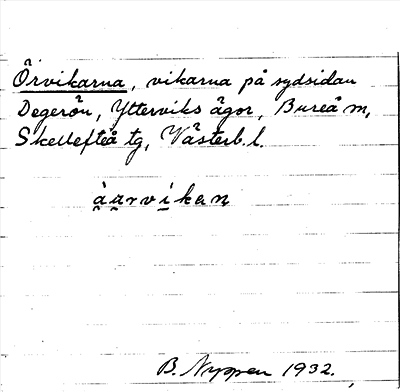 Örvikarna, vikarna på sydsidan
Degerön, Ytterviks ägor, Bureå m,
Skellefteå tg, Västerb. l.
àarvíkan
B. Nyppen 1932.